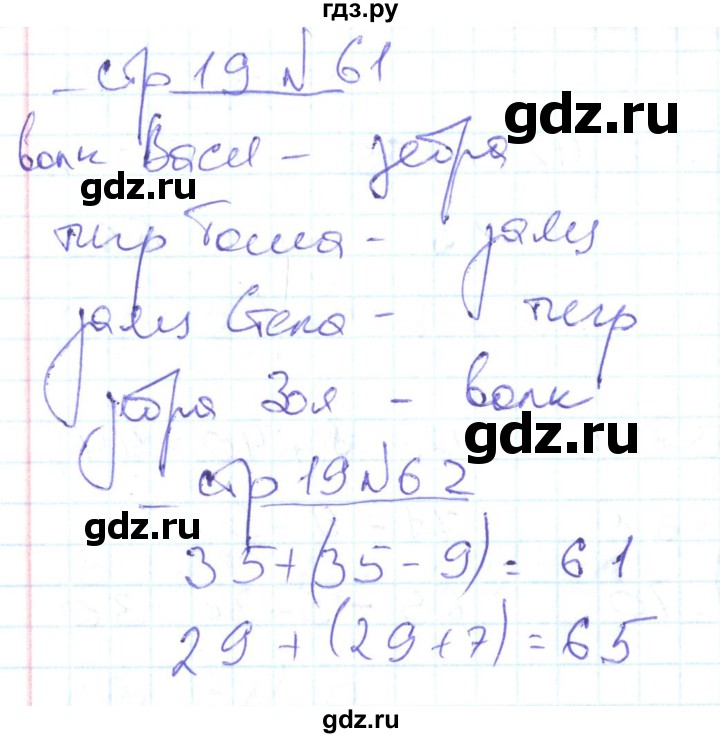 гдз.ру
стр 19 N 61
gdz.ru
волк Вася - зебра
gdz.ru
тигр Гоша - заяц
gdz.ru
заяц Степа - тигр
зебра Зоя - волк
gdz.ru
стр 19 N 62
gdz.ru
35+(35-9)=61
29+(29+7)=65
gdz.ru